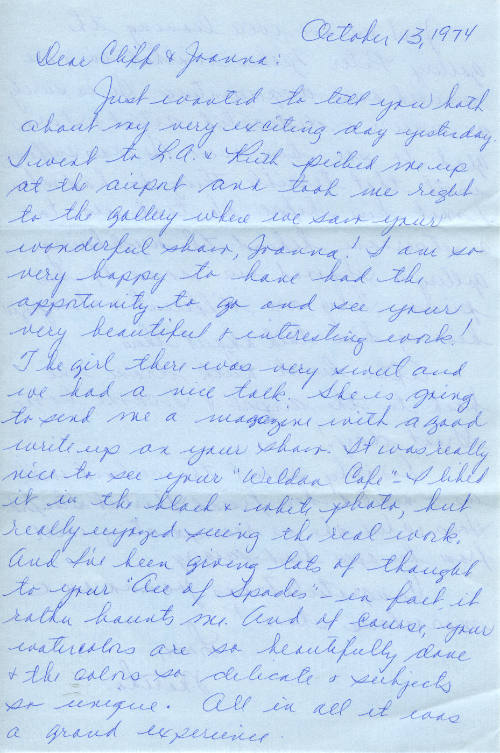 October 13, 1974
Dear Cliff & Joanna:
Just wanted to tell you both
about my very exciting day yesterday.
I went to L.A. & Ruth picked me up
at the airport and took me right
to the gallery where we saw your
wonderful show, Joanna! I am so
very happy to have had the
opportunity to go and see your
very beautiful & interesting work!
The girl there was very sweet and
we had a nice talk. She is going
to send me a magazine with a good
write up on your show. It was really
nice to see your "Weldon Cafe" - I liked
it in the black & white photo, but
really enjoyed seeing the real work.
And I've been giving lots of thought
to your "Ace of Spades" - in fact, it
rather haunts me. And of course, your
watercolors are so beautifully done
& the colors so delicate & subjects
so unique. All in all it was
a grand experience.